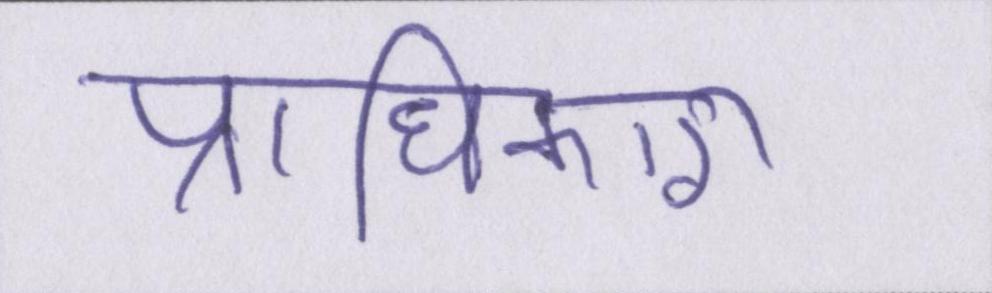 प्राधिकारा